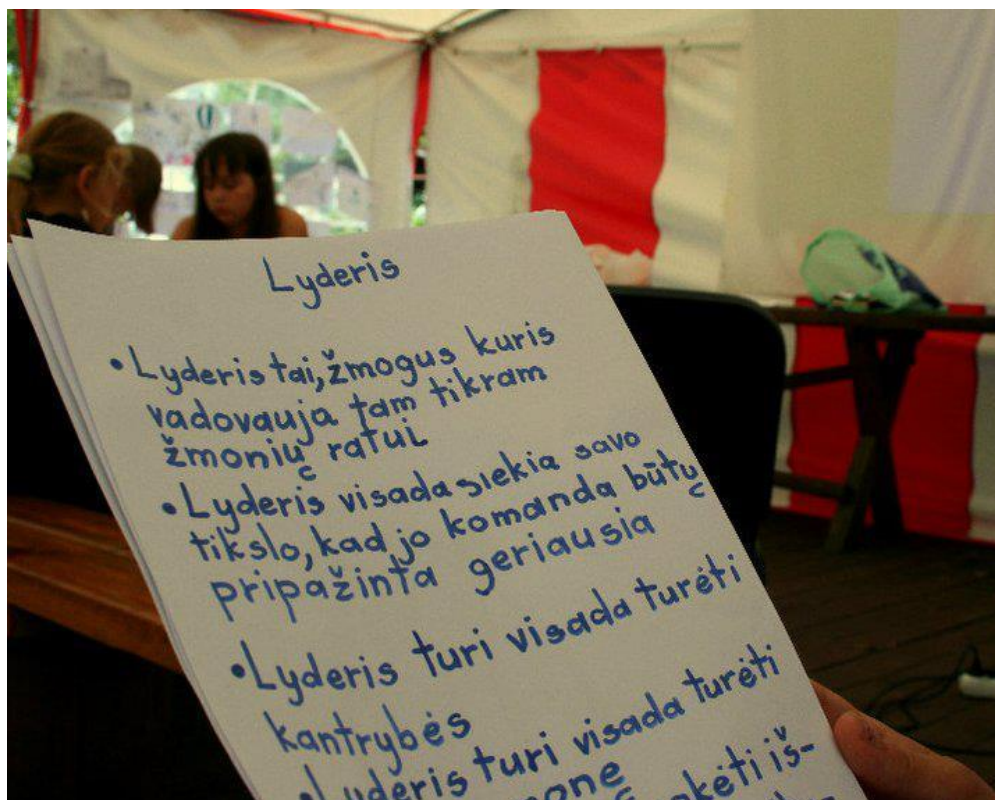 Lyderis
• Lyderis tai, žmogus kuris
vadovauja tam tikram
žmonių ratui
• Lyderis visada siekia savo
tikslo, kad jo komanda būtų
pripažinta geriausia
• Lyderis turi visada turėti
kantrybės
• Lyderis turi visada turėti
iš-